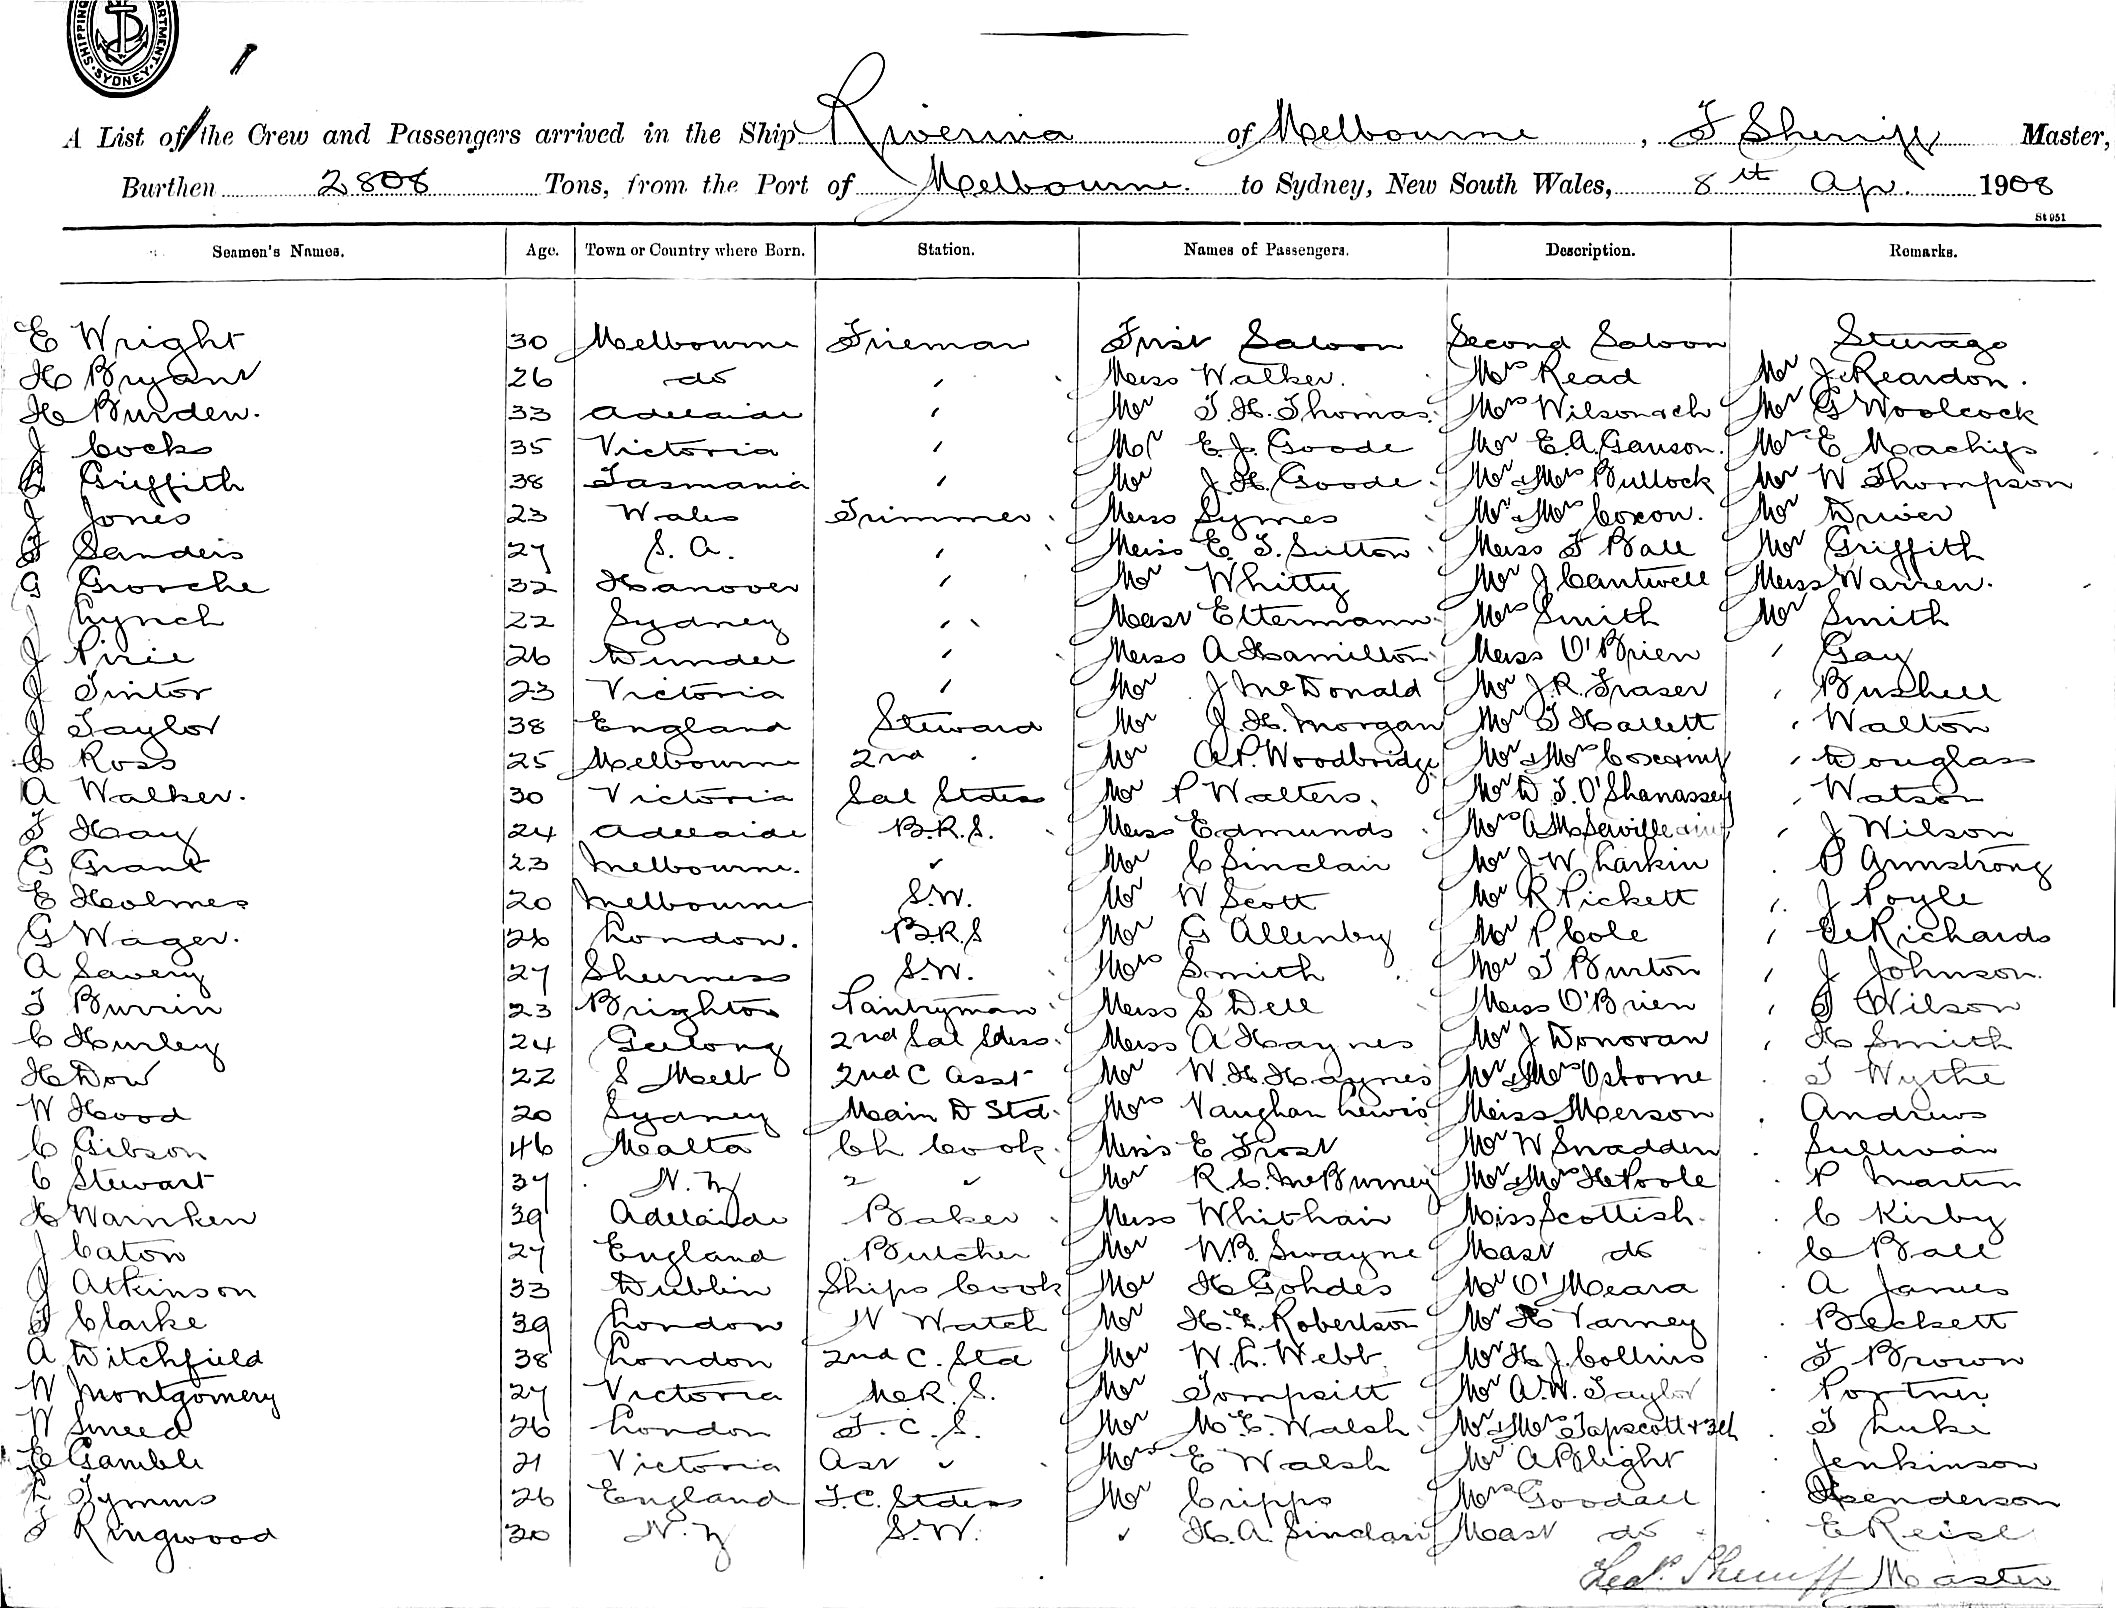 SHIPPING DEPARTMENT. SYDNEY
A List of the Crew and Passengers arrived in the Ship Riverina of Melbourne, F Sherriff Master,
Burthen 2808 Tons, from the Port of Melbourne to Sydney, New South Wales, 8th Apr. 1908
St 951
Seamen's Names. Age. Town or Country where Born. Station. Names of Passengers. Description. Remarks.
E Wright 30 Melbourne Fireman First Saloon Second Saloon Steerage
H Bryant 26 do " Miss Walker. Mrs Read Mr J Reardon.
H Burden. 33 Adelaide " Mr T. H. Thomas. Mrs Wilson & ch Mr G Woolcock
J Cocks 35 Victoria " Mr E. J. Goode Mr E. A. Ganson. Mr E Machips
Griffith 38 Tasmania " Mr J. H. Goode. Mr & Mrs Bullock Mr W Thompson
J Jones 23 Wales Trimmer Miss Symes Mr & Mrs Coxon. Mr Driver
F Sanders 27 S. A. " Miss E. T. Sutton Miss F Ball Mr Griffith
G Grosche 32 Hanover " Mr Whitty Mr J Cantwell Miss Warren.
J Lynch 22 Sydney " Mast Eltermann Mrs Smith Mr Smith
J Pirie 26 Dundee " Miss A Hamilton Miss O'Brien " Gay
J Tintor 23 Victoria " Mr J McDonald Mr J. R. Fraser " Bushell
J Taylor 38 England Steward Mr J. H. Morgan Mr T Hallett " Walton
C Ross 25 Melbourne 2nd " Mr A. P. Woodbridge Mr & Mrs " Douglass
A Walker. 30 Victoria Sal Stdess Mr P Walters. Mr D. T. O'Shanassey " Watson
T Hay 24 Adelaide B.R.S. Miss Edmunds Mrs A M Serville & inf " J Wilson
G Grant 23 Melbourne. " Mr C Sinclair Mr J. W. Larkin " P Armstrong
E Holmes 20 Melbourne S.W. Mr W Scott Mr R Pickett " J Poyle
G Wager. 26 London. B.R.S Mr G Allenby Mr P Cole " E Richards
A Savery 27 Sheerness S.W. Mrs Smith Mr T Burton " J Johnson.
T Burrin 23 Brighton Pantryman Miss S Dell Miss O'Brien " F Wilson
C Hurley 24 Geelong 2nd Sal Stdess. Miss A Haynes Mr J Donovan " H Smith
H Dow 22 S Melb 2nd C Asst Mr W. H. Haynes Mr & Mrs Osborne " T Wythe
W Hood 20 Sydney Main D Std. Mrs Vaughan Lewis Miss Merson " Andrews
C Gibson 46 Malta Ch Cook. Miss E Frost Mr W Snadden " Sullivan
C Stewart 37 N. Z 2 " Mr R. C. McBurney Mr & Mrs H Poole " P Martin
H Warnken 39 Adelaide Baker Miss Whithair Miss Scottish. " C Kirby
J Caton 27 England Butcher Mr W. B. Swayne Mast do " C Ball
J Atkinson 33 Dublin Ships Cook Mr H Gohdes Mr O'Meara A James
F Clarke 39 London N Watch Mr H. E. Robertson Mr H Varney " Beckett
A Ditchfield 38 London 2nd C. Std Mr W. L. Webb Mr H J. Collins " F Brown
W Montgomery 27 Victoria M.R. S. Mr Tompsitt Mr A. W. Taylor " Portner
W Smeed 26 London F. C. S. Mr M. E. Walsh Mr & Mrs Tapscott & 3 ch " T Luke
E Gamble 21 Victoria Ast " Mrs E Walsh Mr A Blight Jenkinson
L Tymms 26 England F. C. Stdess Mr Cripps Mrs Goodall Henderson
F Ringwood 30 N. Z S.W. " H. A. Sinclair Mast do E Reise
Sherriff Master